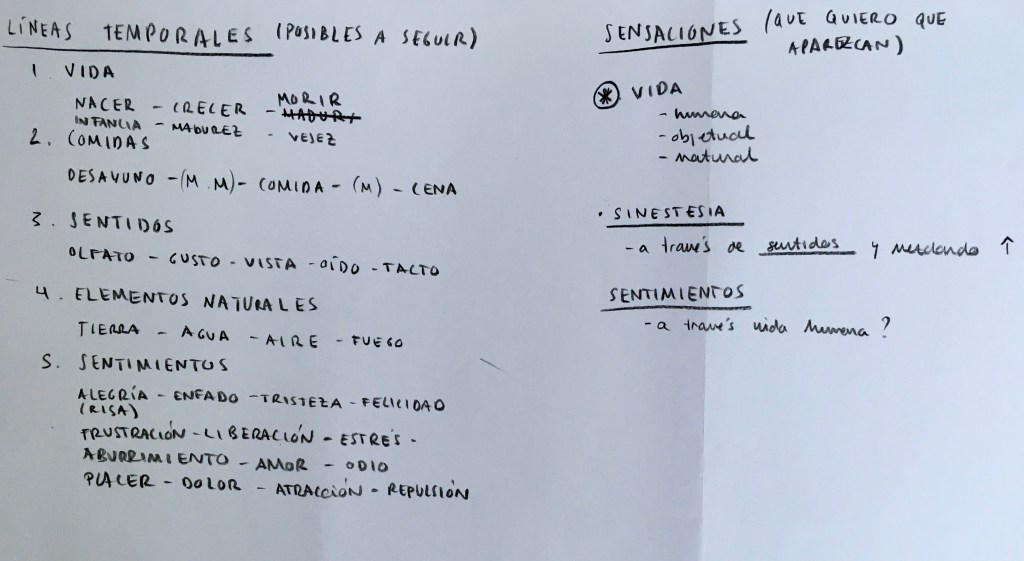 LÍNEAS TEMPORALES (POSIBLES A SEGUIR)
1. VIDA
NACER - CRECER - MORIR
INFANCIA - MADUREZ - VEJEZ
2. COMIDAS
DESAYUNO - (M.M) - COMIDA - (M) - CENA
3. SENTIDOS
OLFATO - GUSTO - VISTA - OÍDO - TACTO
4. ELEMENTOS NATURALES
TIERRA - AGUA - AIRE - FUEGO
5. SENTIMIENTOS
ALEGRÍA - ENFADO - TRISTEZA - FELICIDAD
(RISA)
FRUSTRACIÓN - LIBERACIÓN - ESTRÉS -
ABURRIMIENTO - AMOR - ODIO
PLACER - DOLOR - ATRACCIÓN - REPULSIÓN
SENSACIONES (QUE QUIERO QUE
APAREZCAN)
* VIDA
- humana
- objetual
- natural
· SINESTESIA
- a través de sentidos y mezclando ↑
SENTIMIENTOS
- a través vida humana?